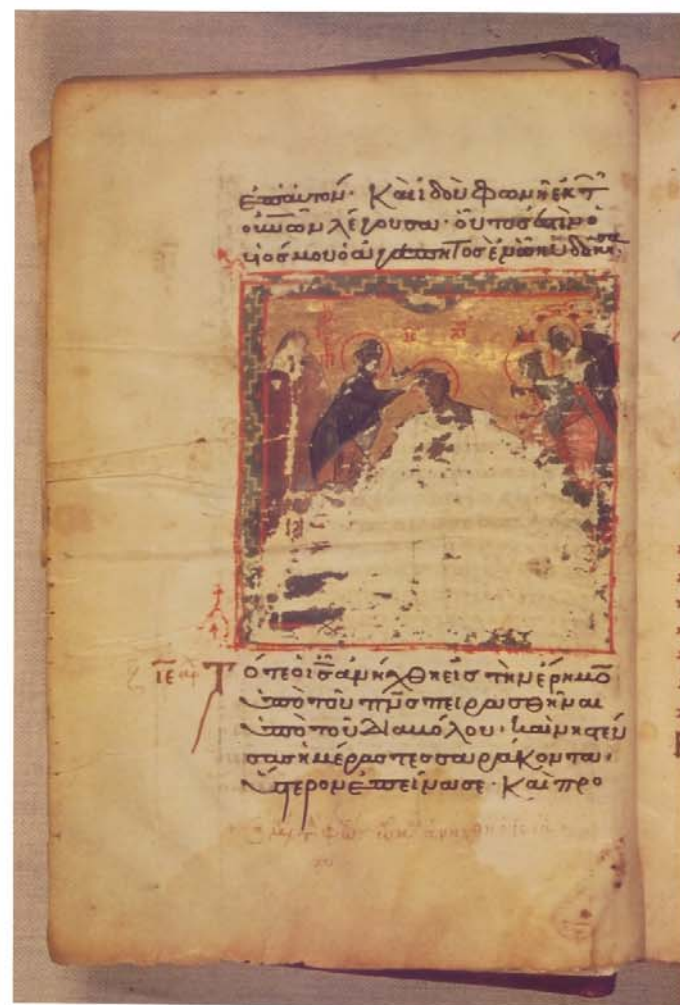 ἐπ αὐτόν· Καὶ ἰδοὺ φωνὴ ἐκ τ
οὐνῶν λέγουσα· οὗτος ἐστιν ὁ
υἱός μου ὁ ἀγαπητὸς ἐν ᾧ ηὐδόκησα·
ΙϹ ΧϹ
ιε Τ
ότε ὁ ις ἀνήχθη εἰς τὴν ἔρημο
ὑπὸ τοῦ πνς πειρασθῆναι
ὑπὸ τοῦ διαβόλου· καὶ νηστεύ
σας ἡμέρας τεσσαράκοντα·
ὕστερον ἐπείνασε· Καὶ προ